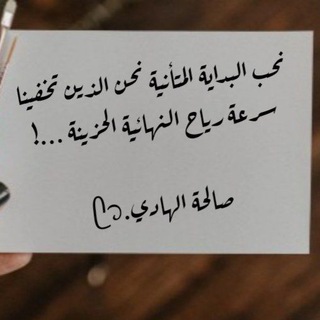 نحب البداية المتأنية نحن الذين تخفينا
سرعة رياح النهائية الحزينة ...!
صالحة الهادي.